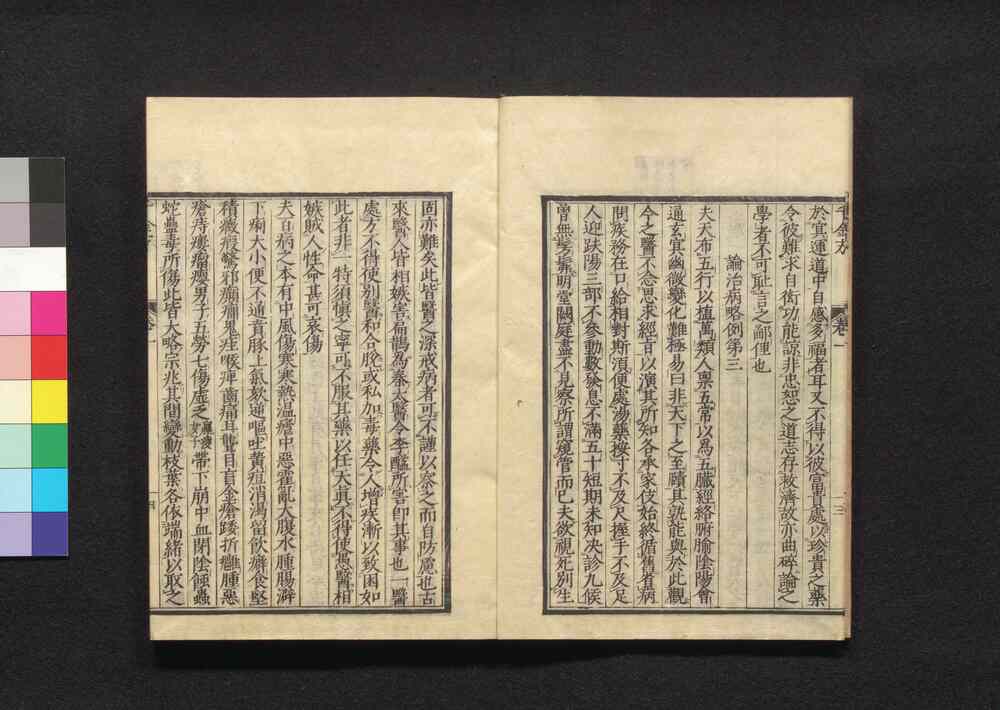 於宜運道中自感多福者耳又不得以彼富貴處以珍貴之藥
令彼難求自衒功能諒非忠恕之道志存救濟故亦曲碎論之
學者不可耻言之鄙俚也
論治病略例第三
夫天布五行以植萬類人稟五常以爲五臟經絡腑腧陰陽會
通玄宜幽微變化難極易曰非天下之至賾其孰能與於此觀
今之醫不念思求經旨以演其所知各承家伎始終循舊省病
問疾務在口給相對斯須便處湯藥按寸不及尺握手不及足
人迎趺陽三部不參動數發息不滿五十短期未知決診九候
曾無髣髴明堂闕庭盡不見察所謂窺管而已夫欲視死別生
固亦難矣此皆醫之深戒病者可不謹以察之而自防慮也古
來醫人皆相嫉害扁鵲爲秦太醫令李醯所害卽其事也一醫
處方不得使別醫和合脫或私加毒藥令人增疾漸以致困如
此者非一特須慎之寧可不服其藥以任天真不得使愚醫相
嫉賊人性命甚可哀傷
夫百病之本有中風傷寒寒熱温瘧中惡霍亂大腹水腫腸澼
下痢大小便不通賁肫上氣欬逆嘔吐黄疸消渴留飲癖食堅
積癥瘕驚邪癲癎鬼疰喉痺齒痛耳聾目盲金瘡踒折癰腫惡
瘡痔瘻瘤癭男子五勞七傷虛乏羸瘦女子帶下崩中血閉陰蝕蟲
蛇蠱毒所傷此皆大略宗兆其間變動枝葉各依端緒以取之
卷一
三
四